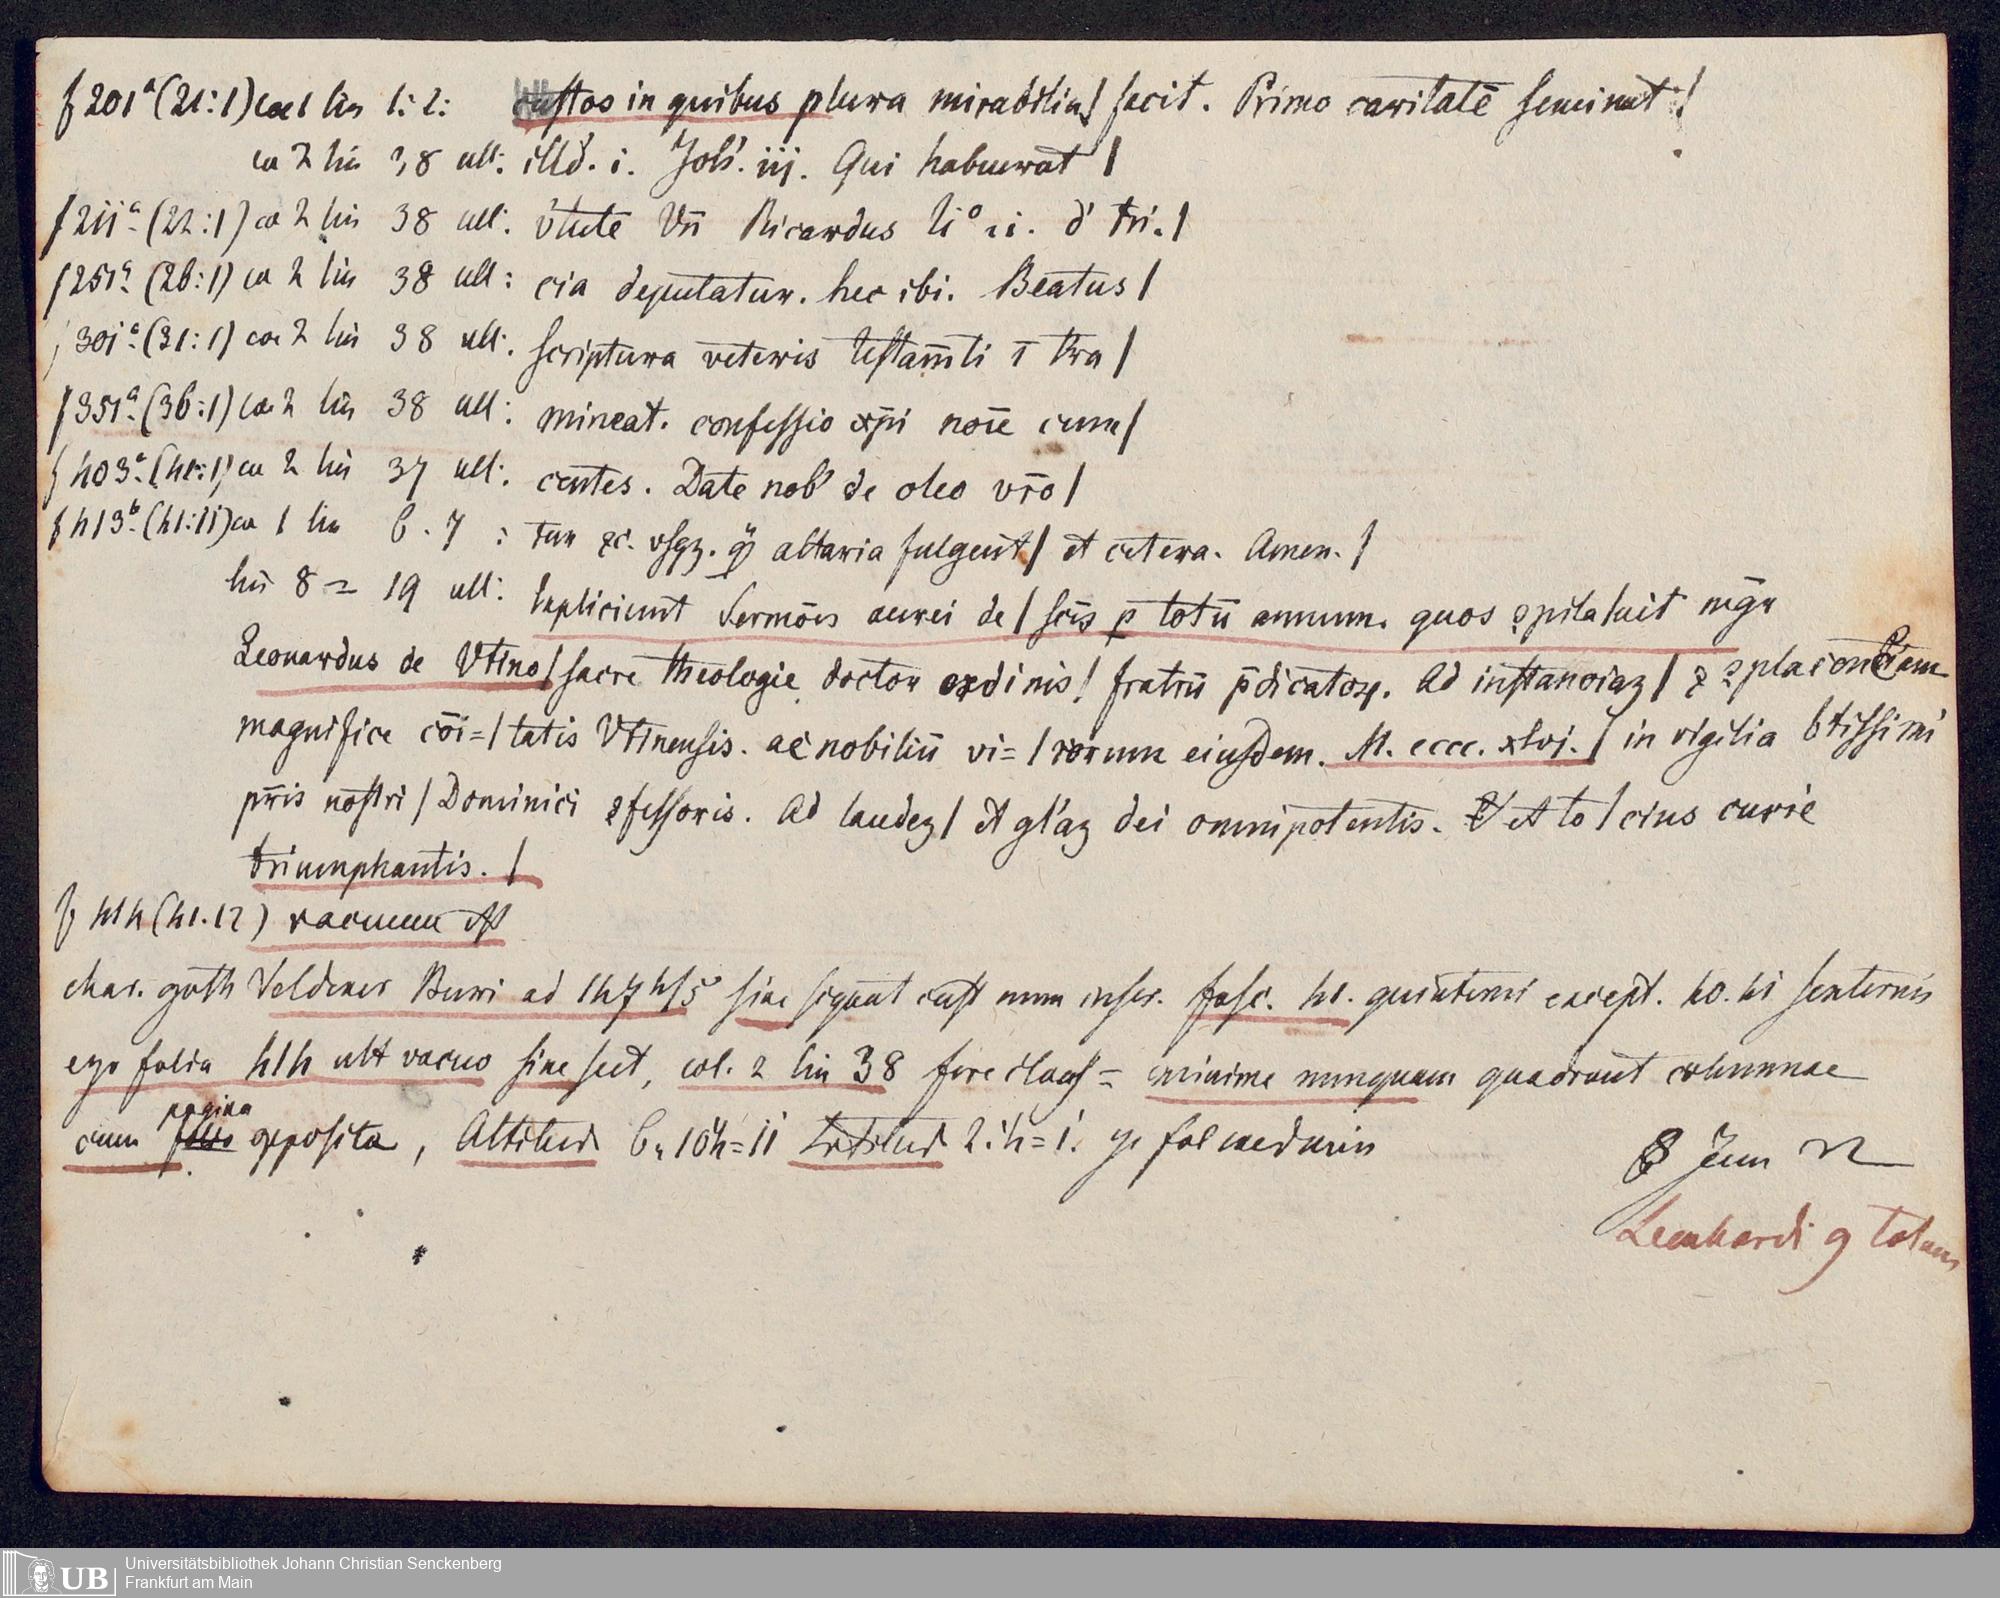 f 201a (21:1) col 1 lin 1: 2: custos in quibus plura mirabilia/ facit. Primo caritatē seminat /
co 2 lin 38 ult: illd'. i. Joh'. iij. Qui habuerat /
f 211a (22:1) co 2 lin 38 ult: v'tute Vn̄ Ricardus li° .i. d' tri. /
f 251a (26:1) co 2 lin 38 ult: cia deputatur. hec ibi. Beatus /
f 301a (31:1) co 2 lin 38 ult. scriptura veteris testam̄ti ī tra /
f 351a (36:1) co 2 lin 38 ult: mineat. confessio xp̄i noīe cum /
f 403a (41:1) co 2 lin 37 ult. centes. Date nob' de oleo vr̄o /
f 413b (41:11) co 1 lin 6. 7 : tur altaria fulgent / et cetera. Amen. /
lin 8 = 19 ult: Expliciunt Sermōes aurei de / scīs p totū annum. quos ꝯpilauit mḡr
Leonardus de Vtino / sacre theologie doctor ordinis / fratrū p̄dicatoꝝ. Ad instanciaꝫ / ⁊ ꝯplacentiam
magnifice cōi= / tatis Vtinensis. ac nobiliū vi= / rorum eiusdem. M. cccc. xlvj. / in vigilia btissimi
pr̄is nostri / Dominici ꝯfessoris. Ad laudeꝫ / et gl'aꝫ dei omnipotentis. et to / cius curie
triumphantis. /
f 414 (41.12) vacuum est
char. goth Veldener Buri ad 1474/5 sine signat cust num inscr. fasc. 41. quinterni except. 40. 41 sexternis
ergo folia 414 ult vacuo sine sect, col. 2 lin 38 fere = minime nunquam quadrant columnae
cum pagina opposita, Altitud 6. 10 1/4 = 11 Latitud 2. 1/4 = 1.
8 Jun
Leonhardi
Universitätsbibliothek Johann Christian Senckenberg
UB Frankfurt am Main